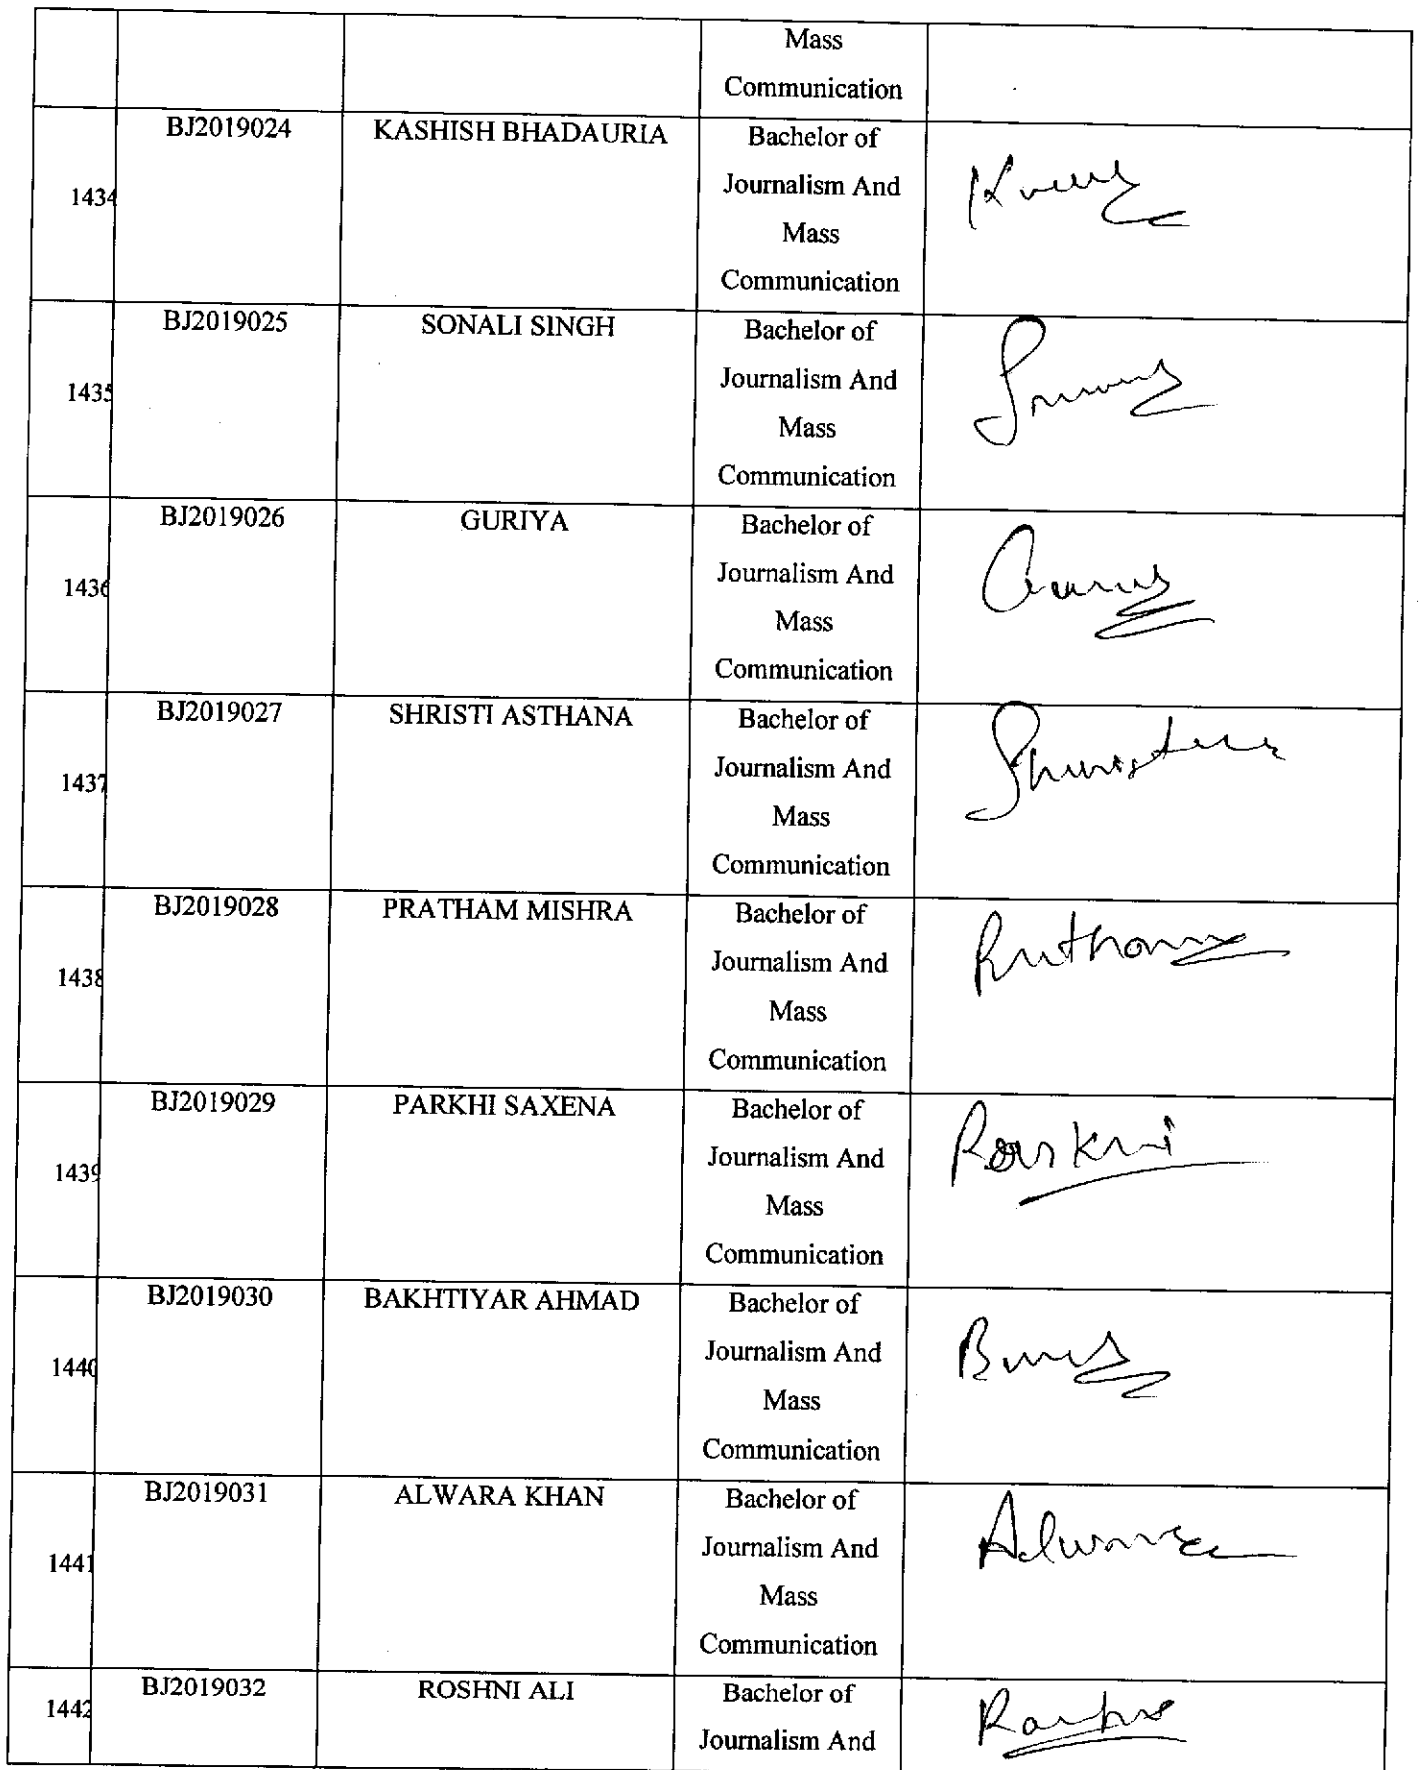 Mass
Communication
BJ2019024 KASHISH BHADAURIA Bachelor of
1434 Journalism And
Mass
Communication
BJ2019025 SONALI SINGH Bachelor of
1435 Journalism And
Mass
Communication
BJ2019026 GURIYA Bachelor of
1436 Journalism And
Mass
Communication
BJ2019027 SHRISTI ASTHANA Bachelor of
1437 Journalism And
Mass
Communication
BJ2019028 PRATHAM MISHRA Bachelor of
1438 Journalism And
Mass
Communication
BJ2019029 PARKHI SAXENA Bachelor of
1439 Journalism And
Mass
Communication
BJ2019030 BAKHTIYAR AHMAD Bachelor of
1440 Journalism And
Mass
Communication
BJ2019031 ALWARA KHAN Bachelor of
1441 Journalism And
Mass
Communication
BJ2019032 ROSHNI ALI Bachelor of
1442 Journalism And